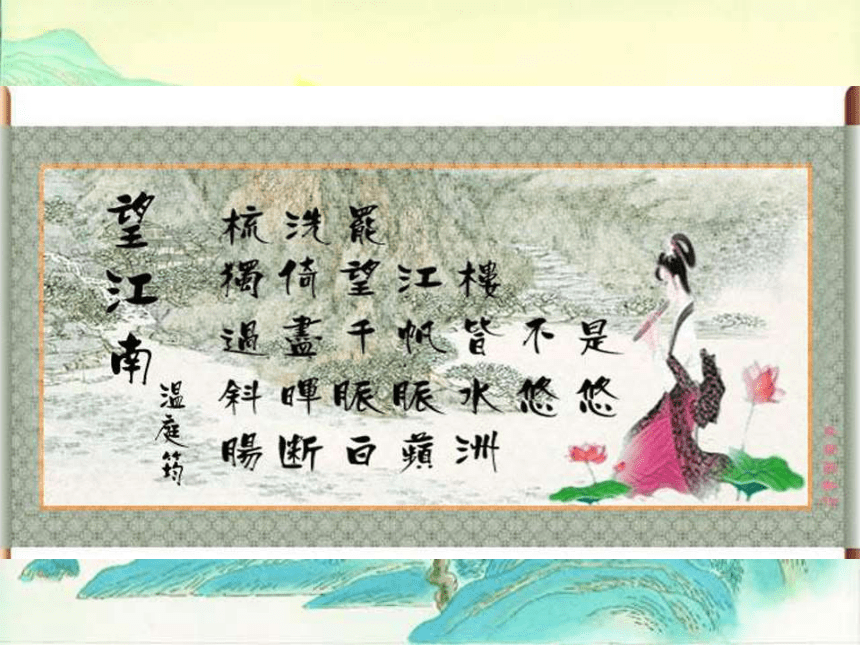 望江南
溫庭筠
梳洗罷
獨倚望江樓
過盡千帆皆不是
斜暉脈脈水悠悠
腸断白蘋洲